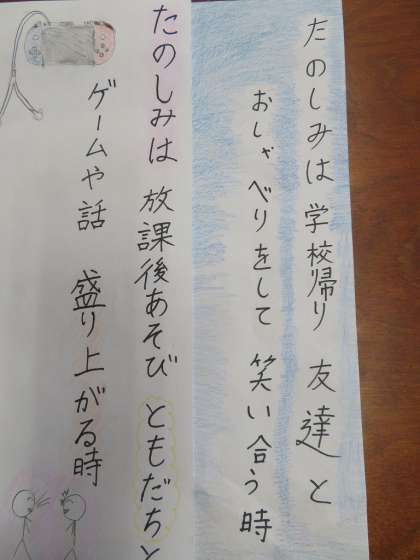 たのしみは 学校帰り 友達と
おしゃべりをして 笑い合う時
たのしみは 放課後あそび ともだちと
ゲームや話 盛り上がる時